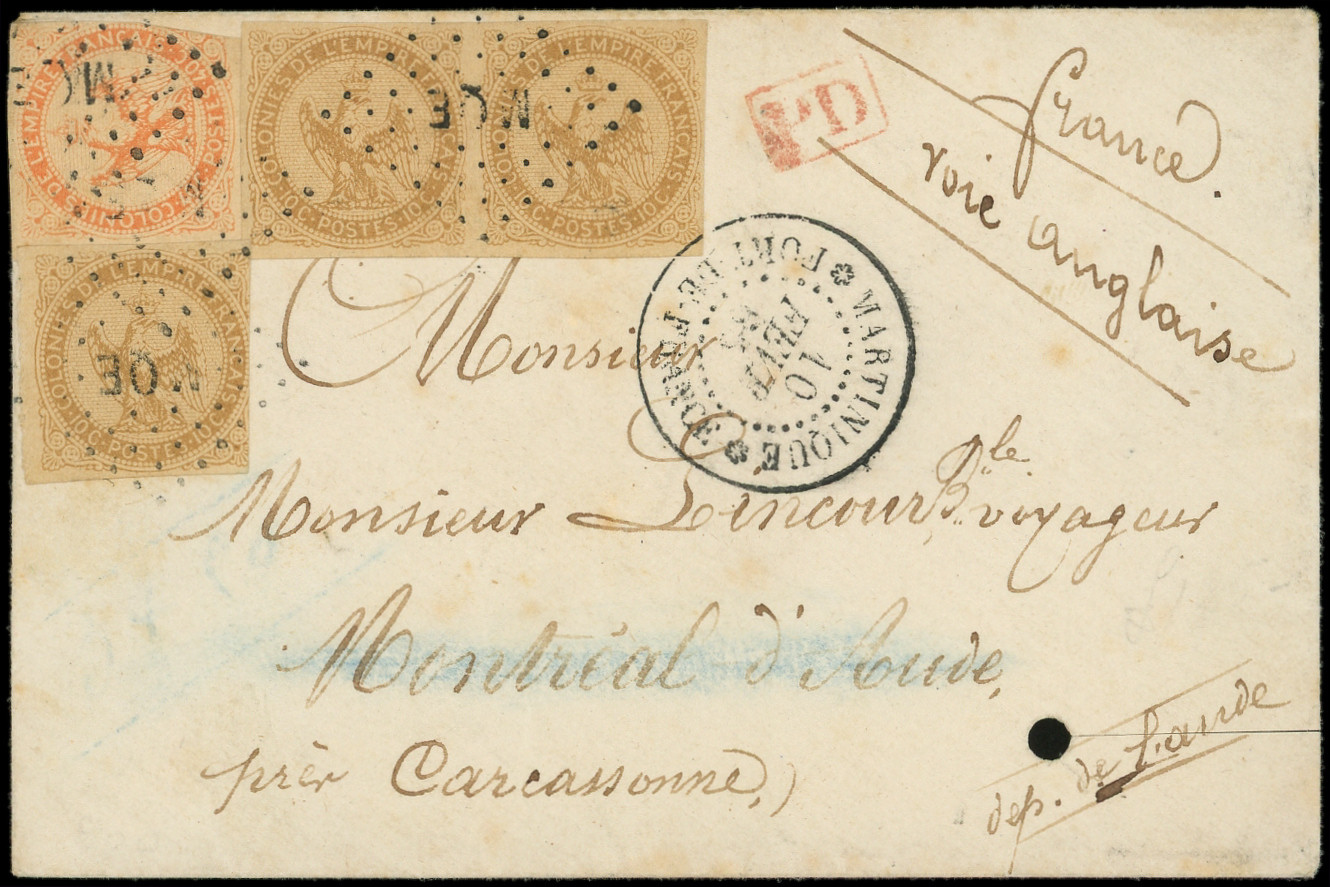 COLONIES DE L'EMPIRE FRANÇAIS · POSTES · 40 C.
COLONIES DE L'EMPIRE FRANÇAIS
10 C. POSTES 10 C.
COLONIES DE L'EMPIRE FRANÇAIS
10 C. POSTES 10 C.
MQE
MQE
PD
france.
voie anglaise
COLONIES DE L'EMPIRE FRANÇAIS
10 C. POSTES 10 C.
MQE
MARTINIQUE
FORT-DE-FRANCE
10
FEVR
Monsieur
Monsieur Lincourt, voyageur
Montréal d'Aude,
près Carcassonne,)
dep. de l'aude